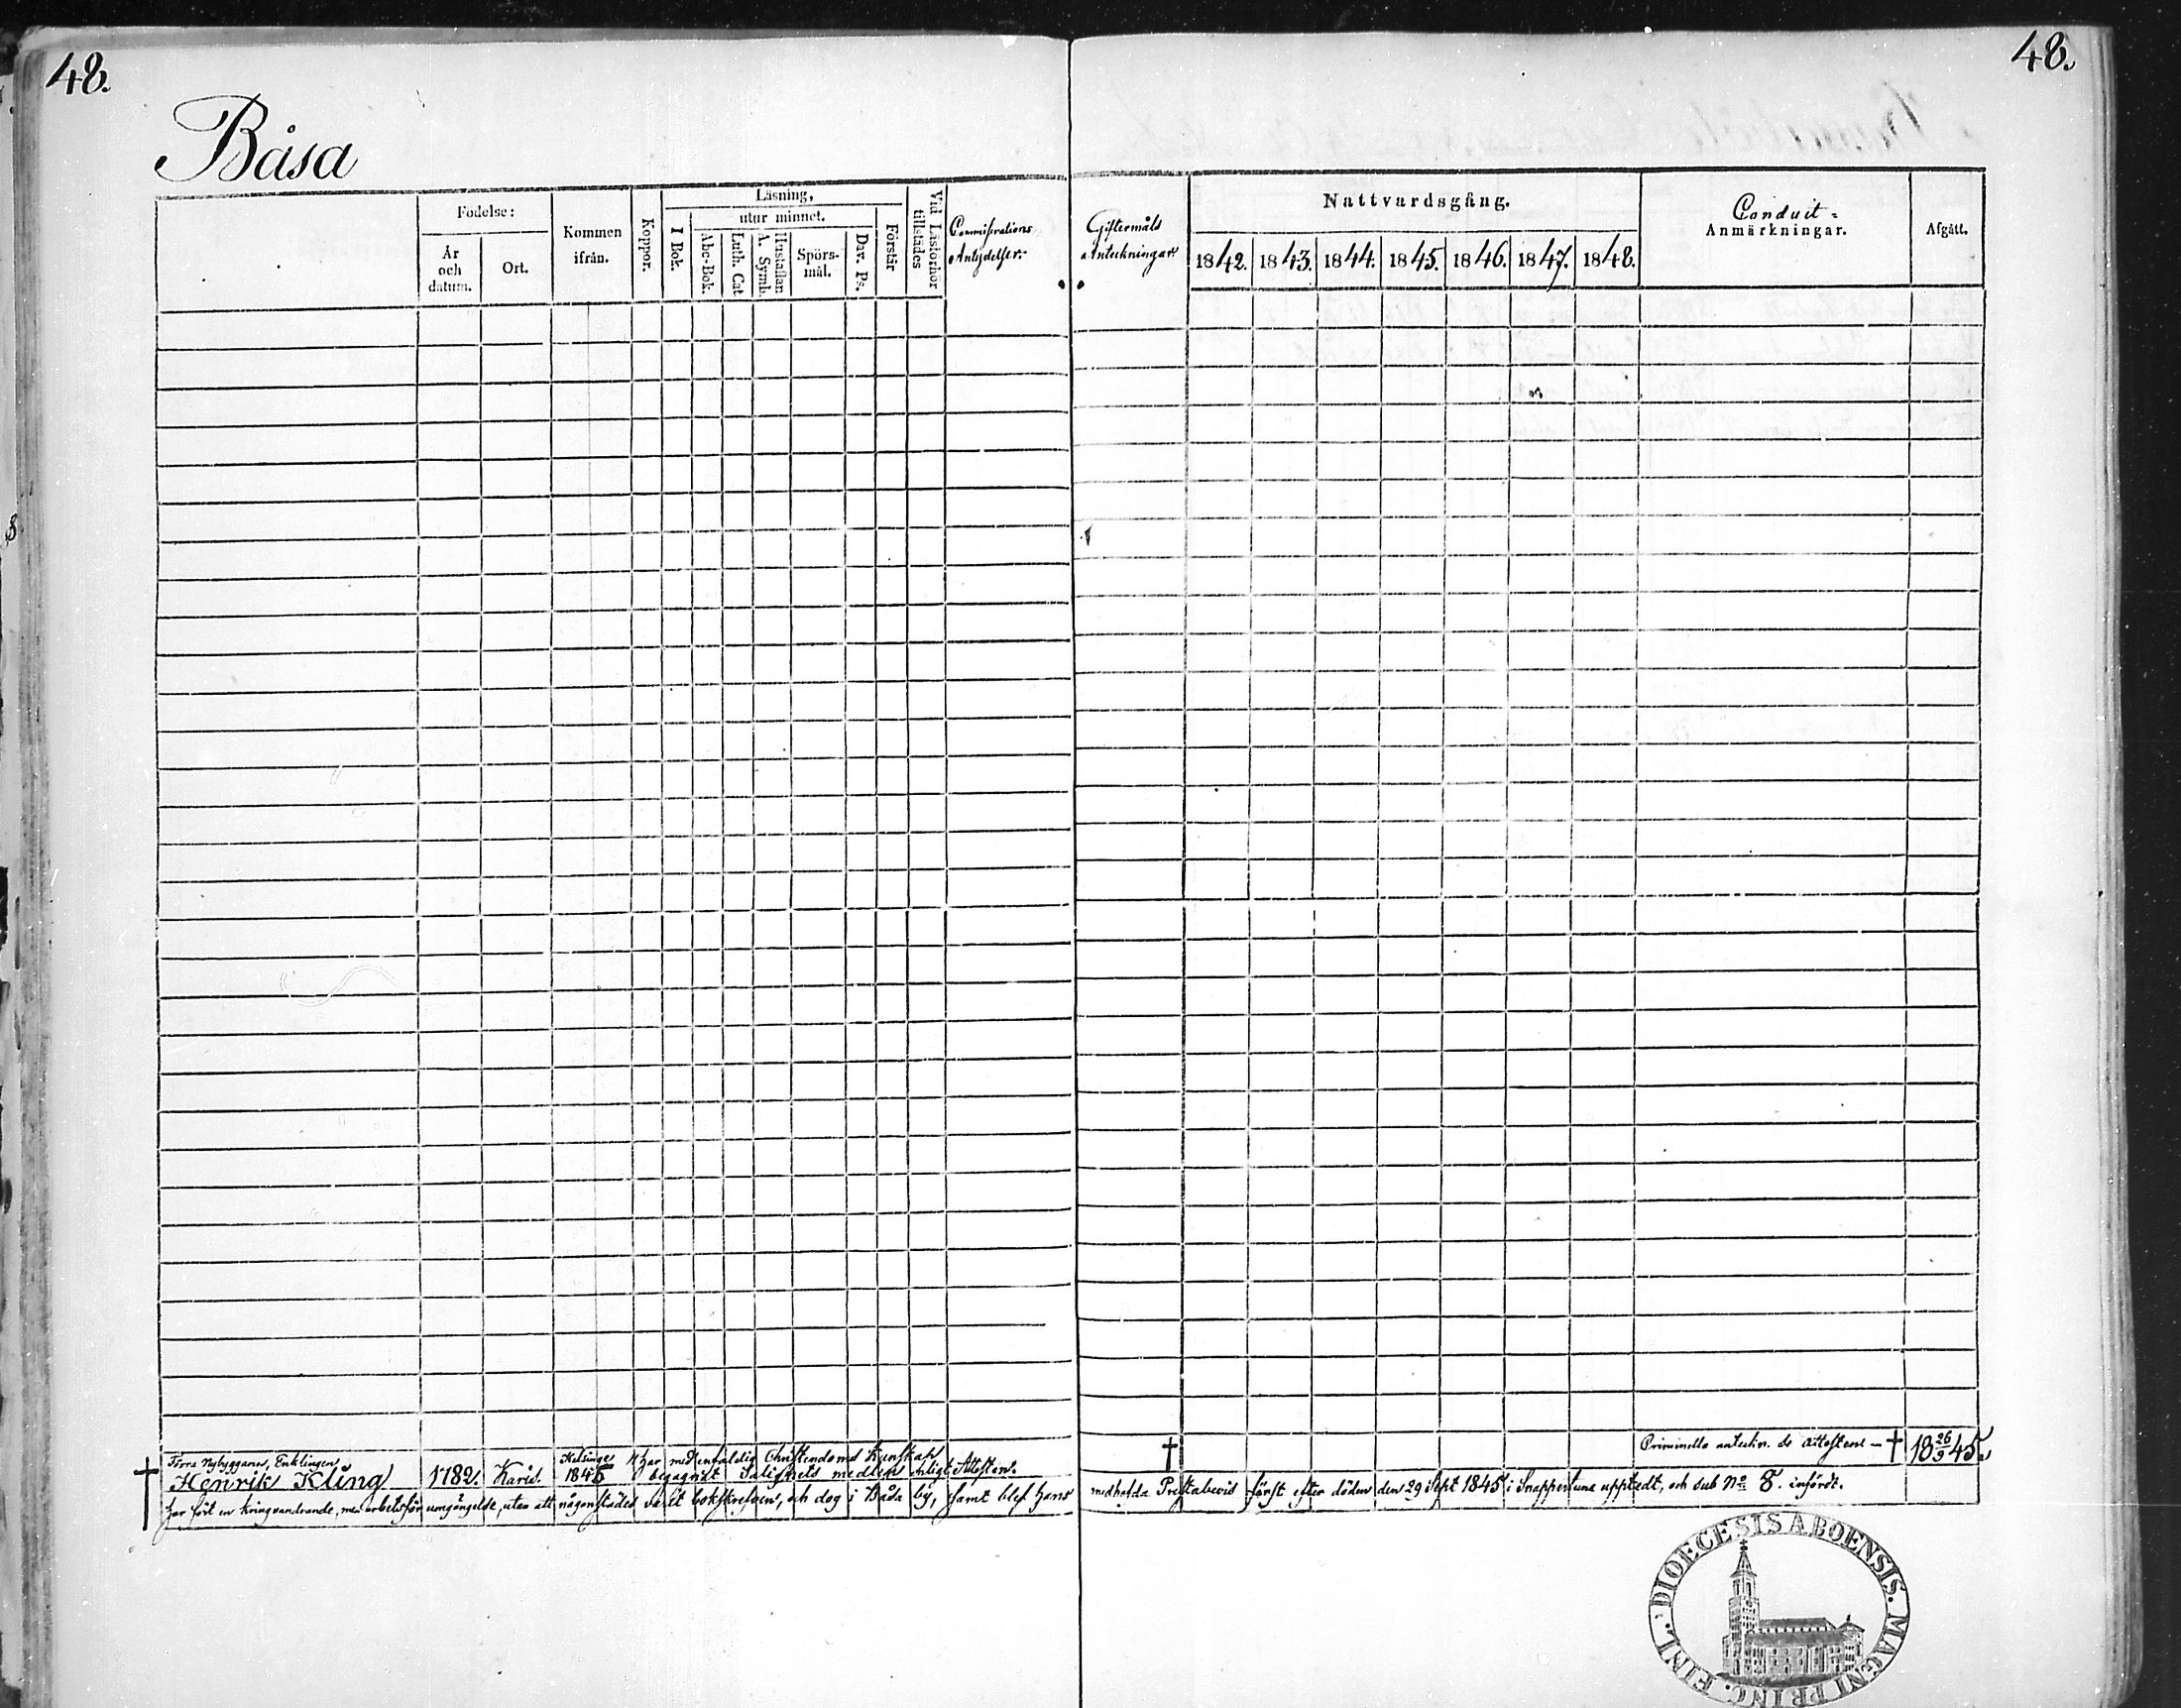 48.
48.
Båsa
Födelse:
År och datum.
Ort.
Kommen ifrån.
Koppor.
Läsning,
utur minnet.
I Bok.
Abc-Bok.
Luth. Cat.
A. Symb. Hustaflan
Spörs-mål.
Dav. Ps.
Förstår
Vid Läsförhör tillstädes
Communications Antydelser.
Giftermåls Anteckningar
Nattvardsgång.
1842. 1843. 1844. 1845. 1846. 1847. 1848.
Conduit-
Anmärkningar.
Afgått.
Förra Nybyggaren, Enklingen
† Henrik Kling 1782. Karis. Helsinge 1845 Har med enfaldig Christendoms Kunskap begagnat Salighets medlen enligt Attesten. † Criminella anteckn. se attesten — † 18 26/9 45.
har fört en kringvandrande, men arbetsför umgängelse, utan att någonstädes varit bokskrefven, och dog i Båsa by, samt blef hans medhafda Prestabevis först efter döden den 29 Sept 1845 i Snappertuna upptedt, och sub No 8. infördt.
DIOECESIS ABOENSIS. MAGNI PRINC. FINL.